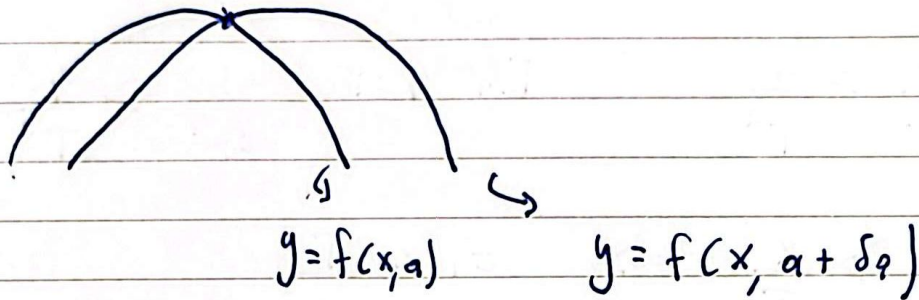 y = f(x, a)
y = f(x, a + δa)